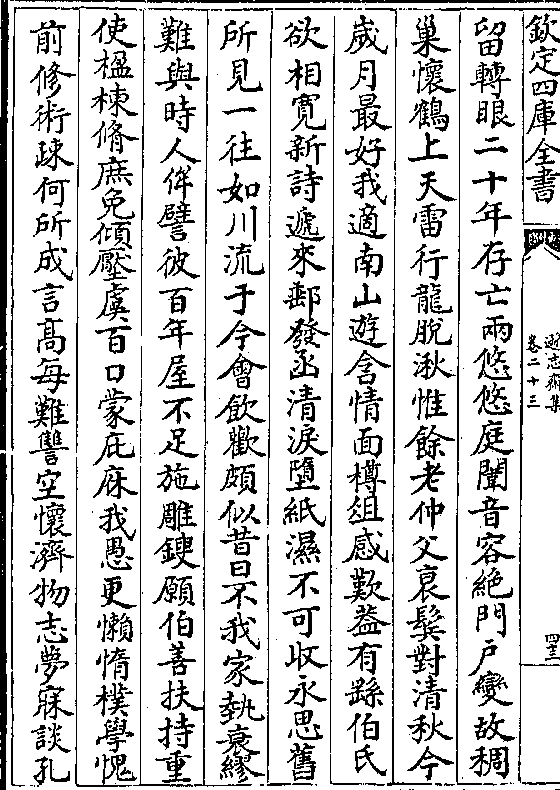 欽定四庫全書
遜志齋集
卷二十三
留轉眼二十年存亡兩悠悠庭闈音容絶門戶變故稠
巢懷鶴上天雷行龍脫湫惟餘老仲父哀鬢對清秋今
歲月最好我適南山遊含情面樽俎感歎益有繇伯氏
欲相寛新詩遞來郵發函清淚墮紙濕不可收永思舊
所見一往如川流于今會飲歡頗似昔日不我家執衰繆
難與時人侔譬彼百年屋不足施雕鎪願伯善扶持重
使楹棟脩庶免傾壓虞百口蒙庇庥我愚更懶惰樸學愧
前修術疎何所成言高每難讐空懷濟物志夢寐談孔